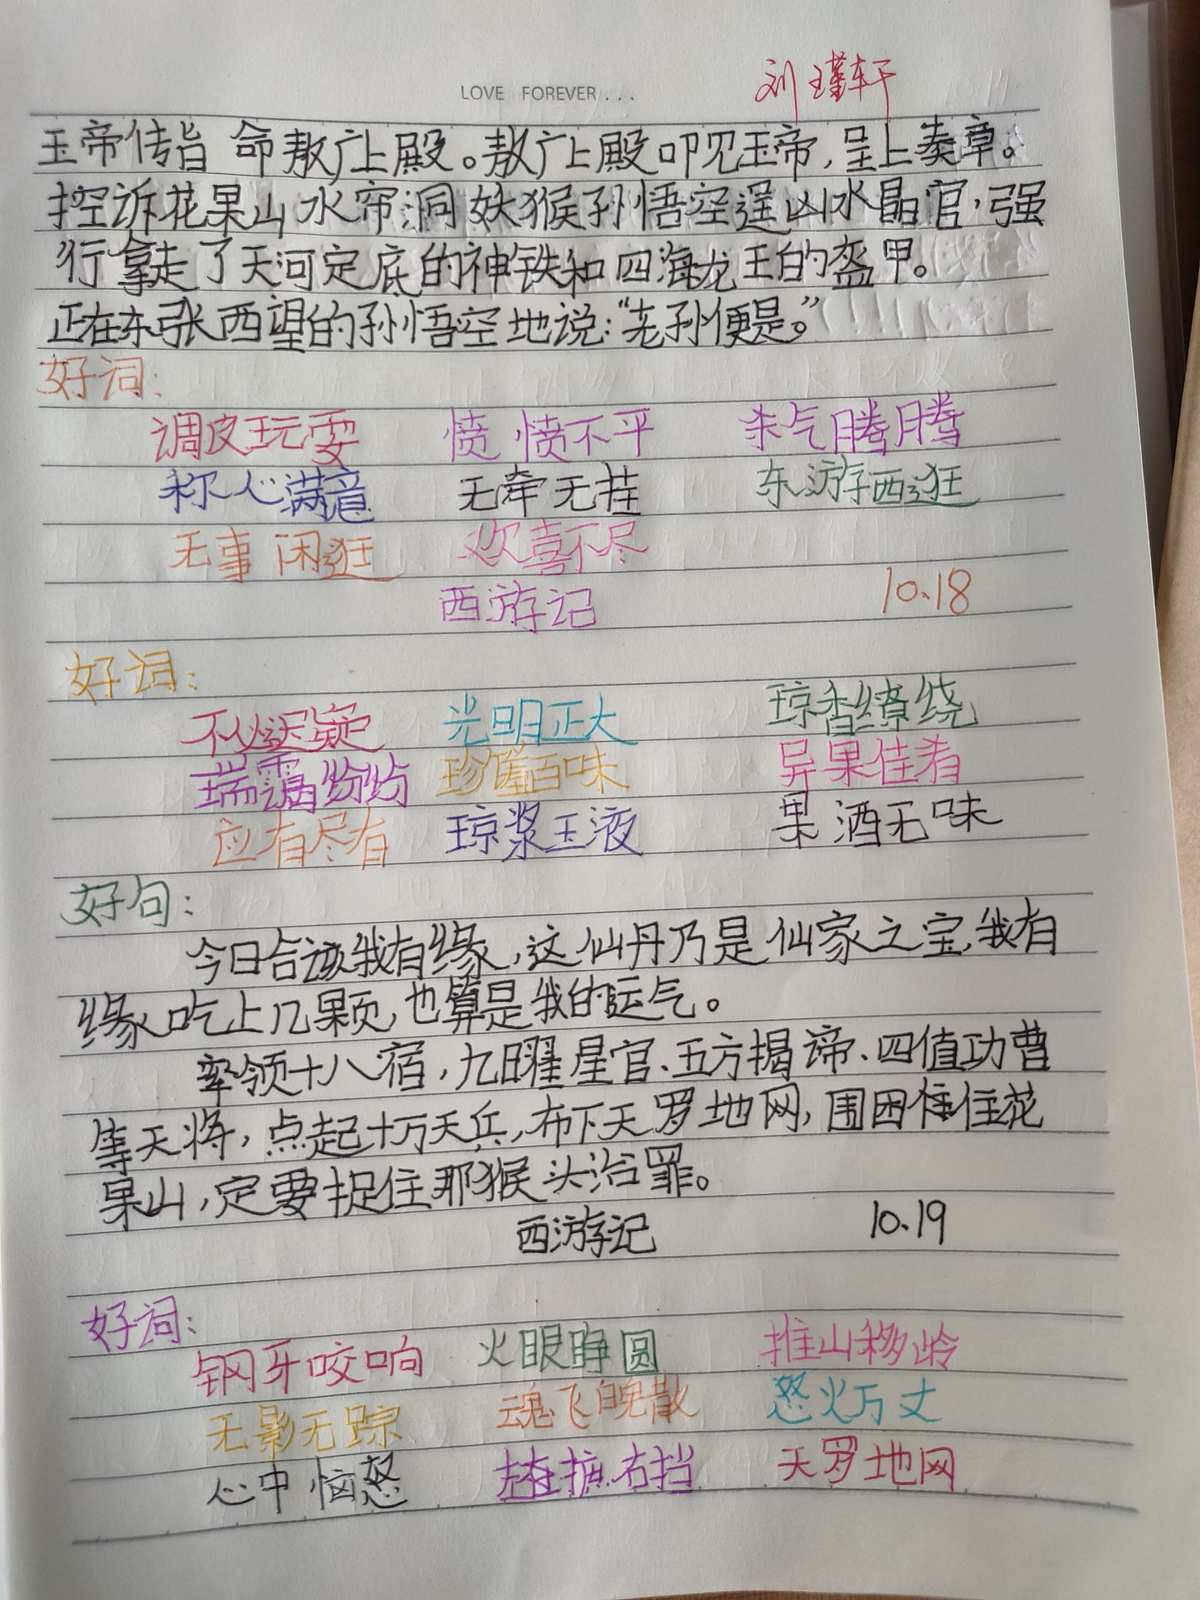 LOVE FOREVER...
刘瑾轩
玉帝传旨 命敖广上殿。敖广上殿叩见玉帝,呈上奏章。
控诉花果山水帘洞妖猴孙悟空逞凶水晶官,强
行拿走了天河定底的神铁和四海龙王的盔甲。
正在东张西望的孙悟空地说:“老孙便是。”
好词:
调皮玩耍 愤愤不平 杀气腾腾
称心满意 无牵无挂 东游西逛
无事闲逛 欢喜不尽
西游记 10.18
好词:
不必迟疑 光明正大 琼香缭绕
瑞霭纷纷 珍馐百味 异果佳肴
应有尽有 琼浆玉液 果酒无味
好句:
今日合该我有缘,这仙丹乃是仙家之宝,我有
缘吃上几颗,也算是我的运气。
率领十八宿,九曜星官、五方揭谛、四值功曹
等天将,点起十万天兵,布下天罗地网,围困住住花
果山,定要捉住那猴头治罪。
西游记 10.19
好词:
钢牙咬响 火眼睁圆 推山移岭
无影无踪 魂飞魄散 怒火万丈
心中恼怒 左遮右挡 天罗地网